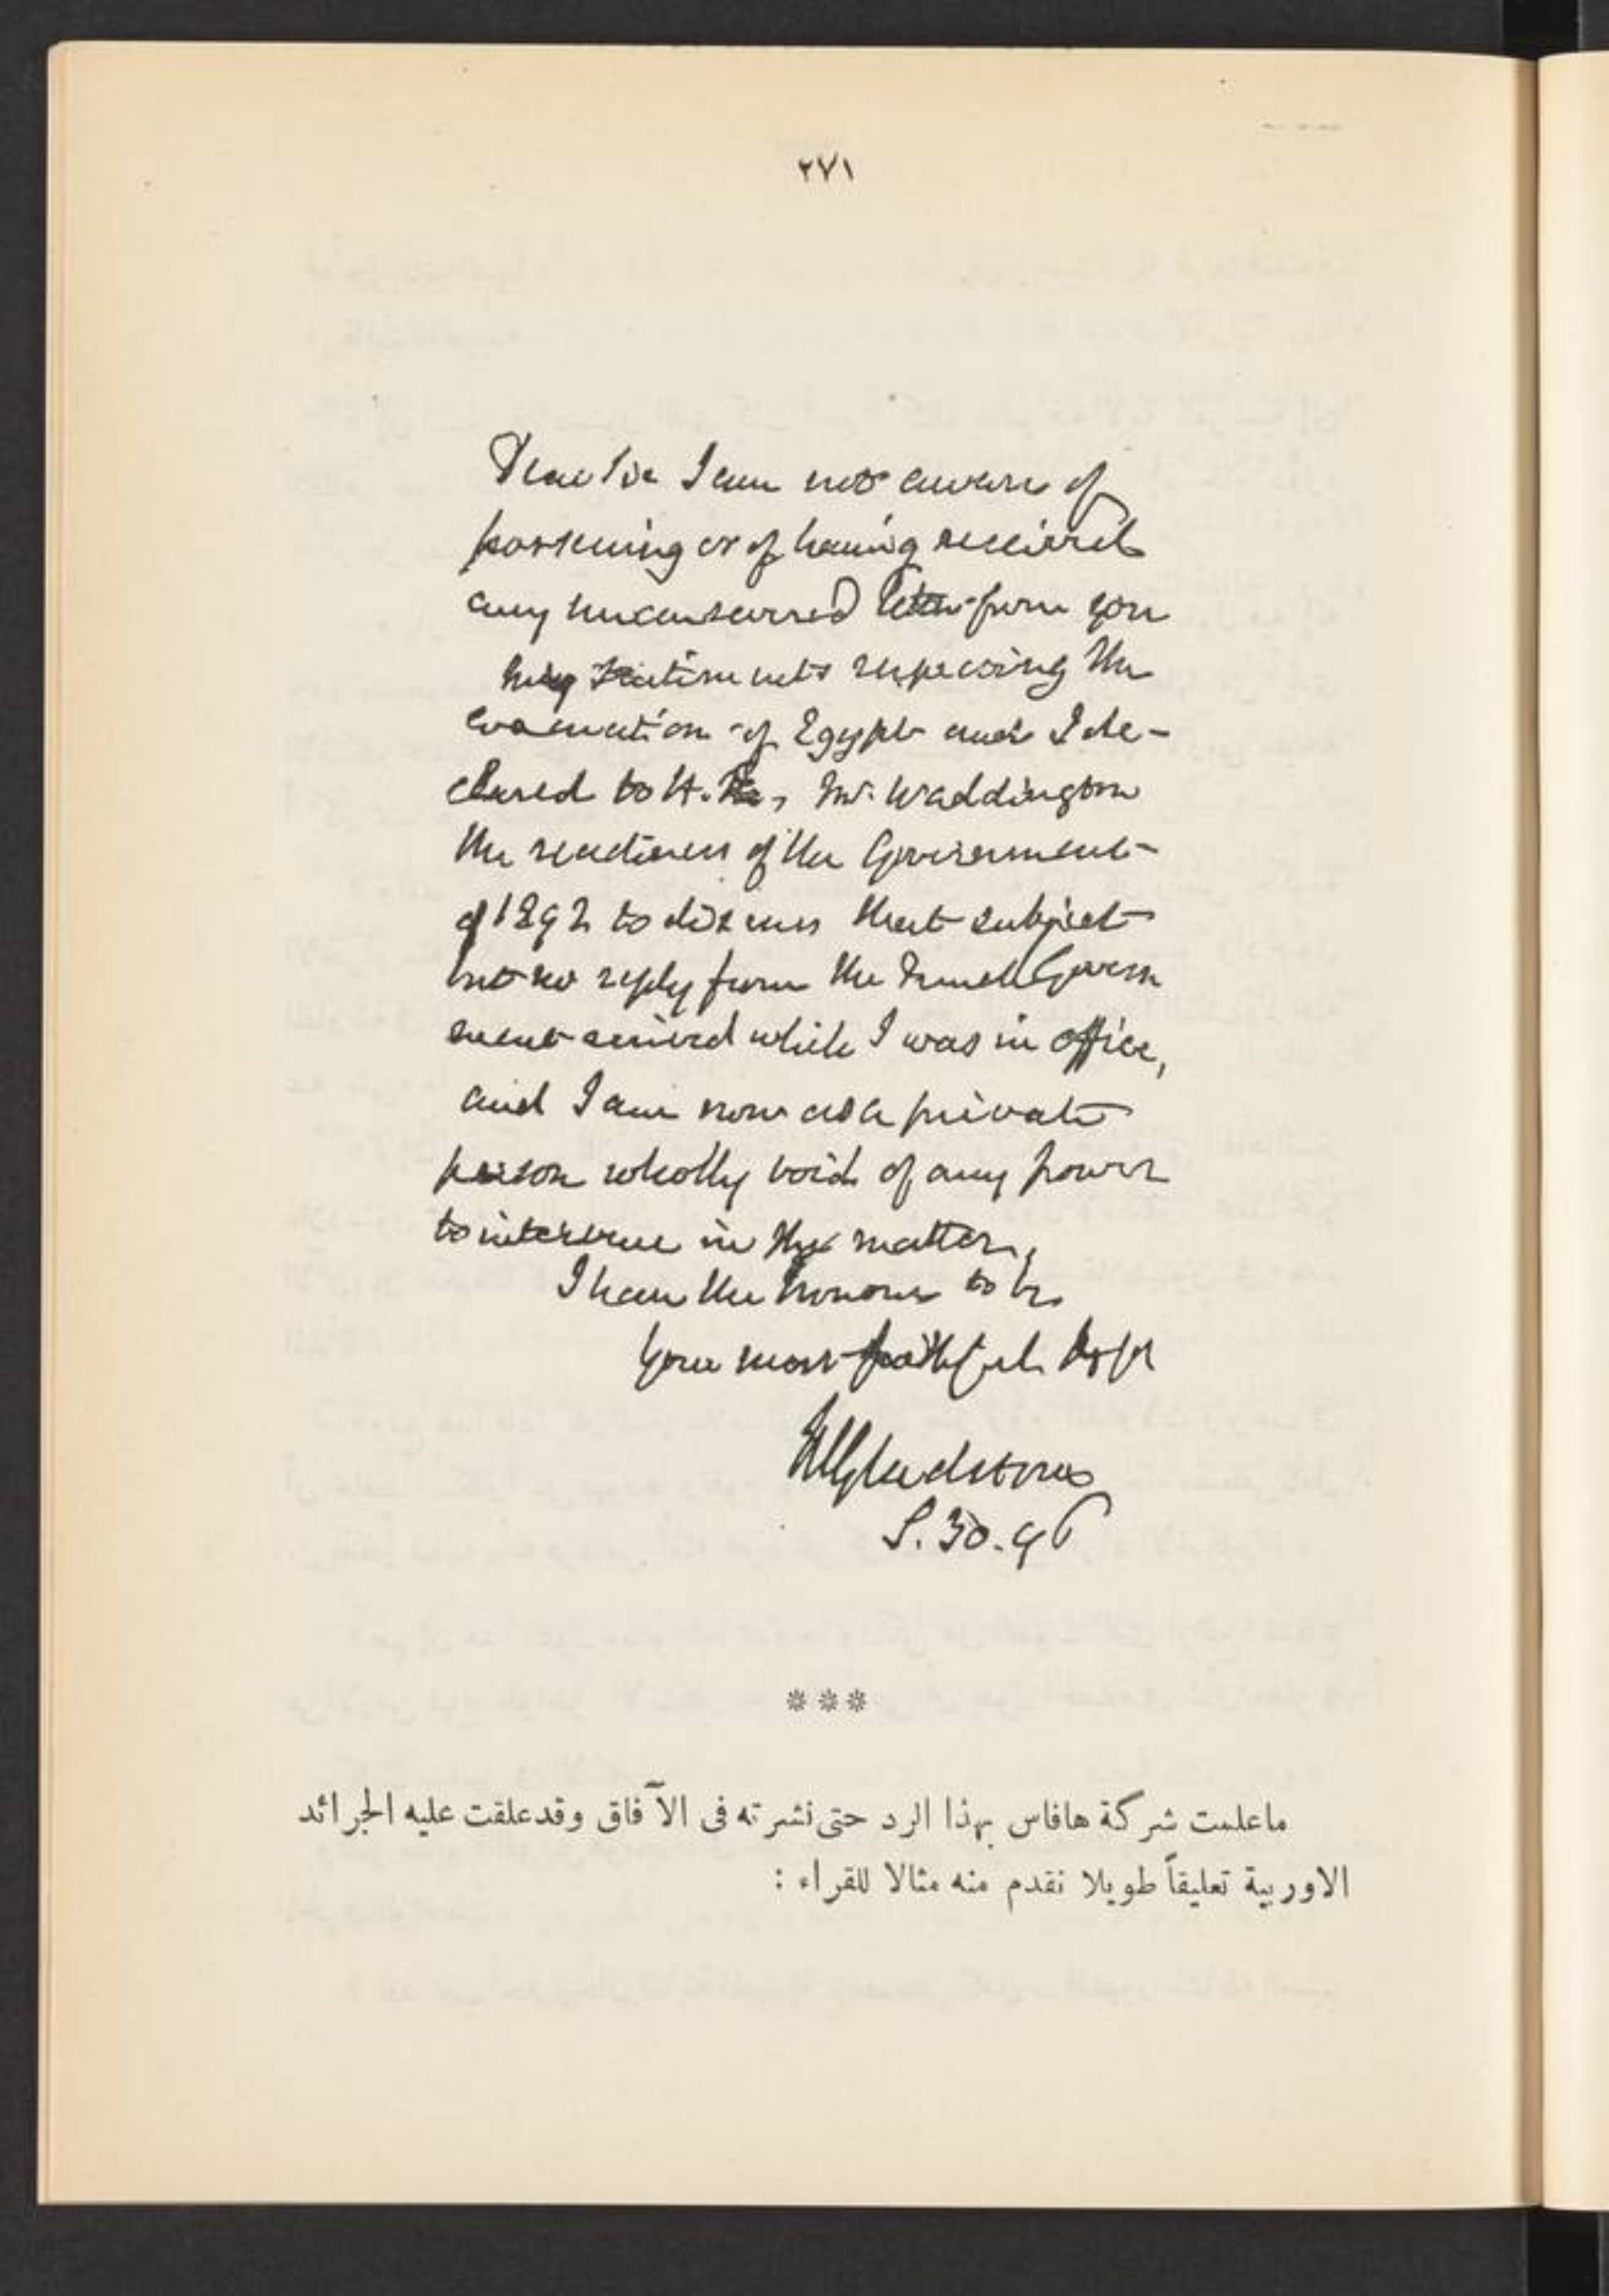 ٢٧١
Dear Sir I am not aware of
possessing or of having received
any unanswered letter from you
My sentiments respecting the
evacuation of Egypt and I de-
clared to H. E., Mr. Waddington
the readiness of the Government
of 1892 to discuss that subject
but no reply from the French Govern
ment arrived while I was in office,
and I am now as a private
person wholly void of any power
to intervene in the matter,
I have the honour to be
Your most faithful
WGladstone
S. 30. 96
***
ماعلمت شركة هافاس بهذا الرد حتى نشرته فى الآفاق وقد علقت عليه الجرائد
الاوربية تعليقاً طويلا نقدم منه مثالا للقراء :